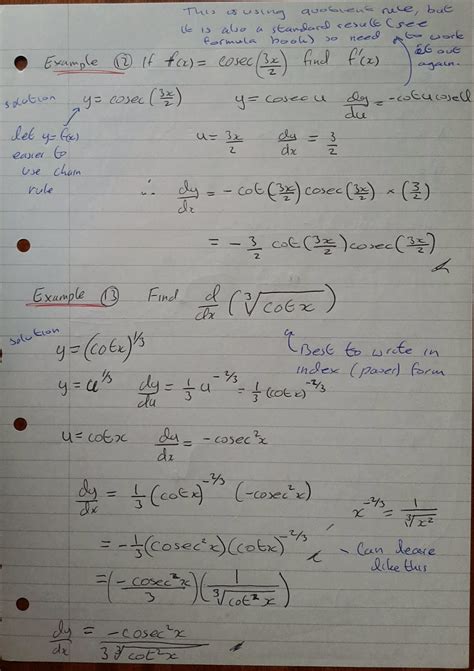 This is using quotient rule, but
it is also a standard result (see
formula book) so need to work
it out
again.
Example (12) If f(x) = cosec(3x/2) find f'(x)
solution y = cosec(3x/2) y = cosec u dy/du = -cotu cosecu
let y=f(x)
easier to
use chain
rule
u = 3x/2 dy/dx = 3/2
∴ dy/dx = -cot(3x/2)cosec(3x/2) × (3/2)
= -3/2 cot(3x/2)cosec(3x/2)
Example (13) Find d/dx (∛cotx)
solution
y = (cotx)^1/3
Best to write in
index (power) form
y = u^1/3 dy/du = 1/3 u^-2/3 = 1/3 (cotx)^-2/3
u = cotx du/dx = -cosec²x
dy/dx = 1/3 (cotx)^-2/3 (-cosec²x)
x^-2/3 = 1/∛x²
= -1/3 (cosec²x)(cotx)^-2/3
- Can leave
like this
= (-cosec²x/3)(1/∛cot²x)
dy/dx = -cosec²x/3∛cot²x